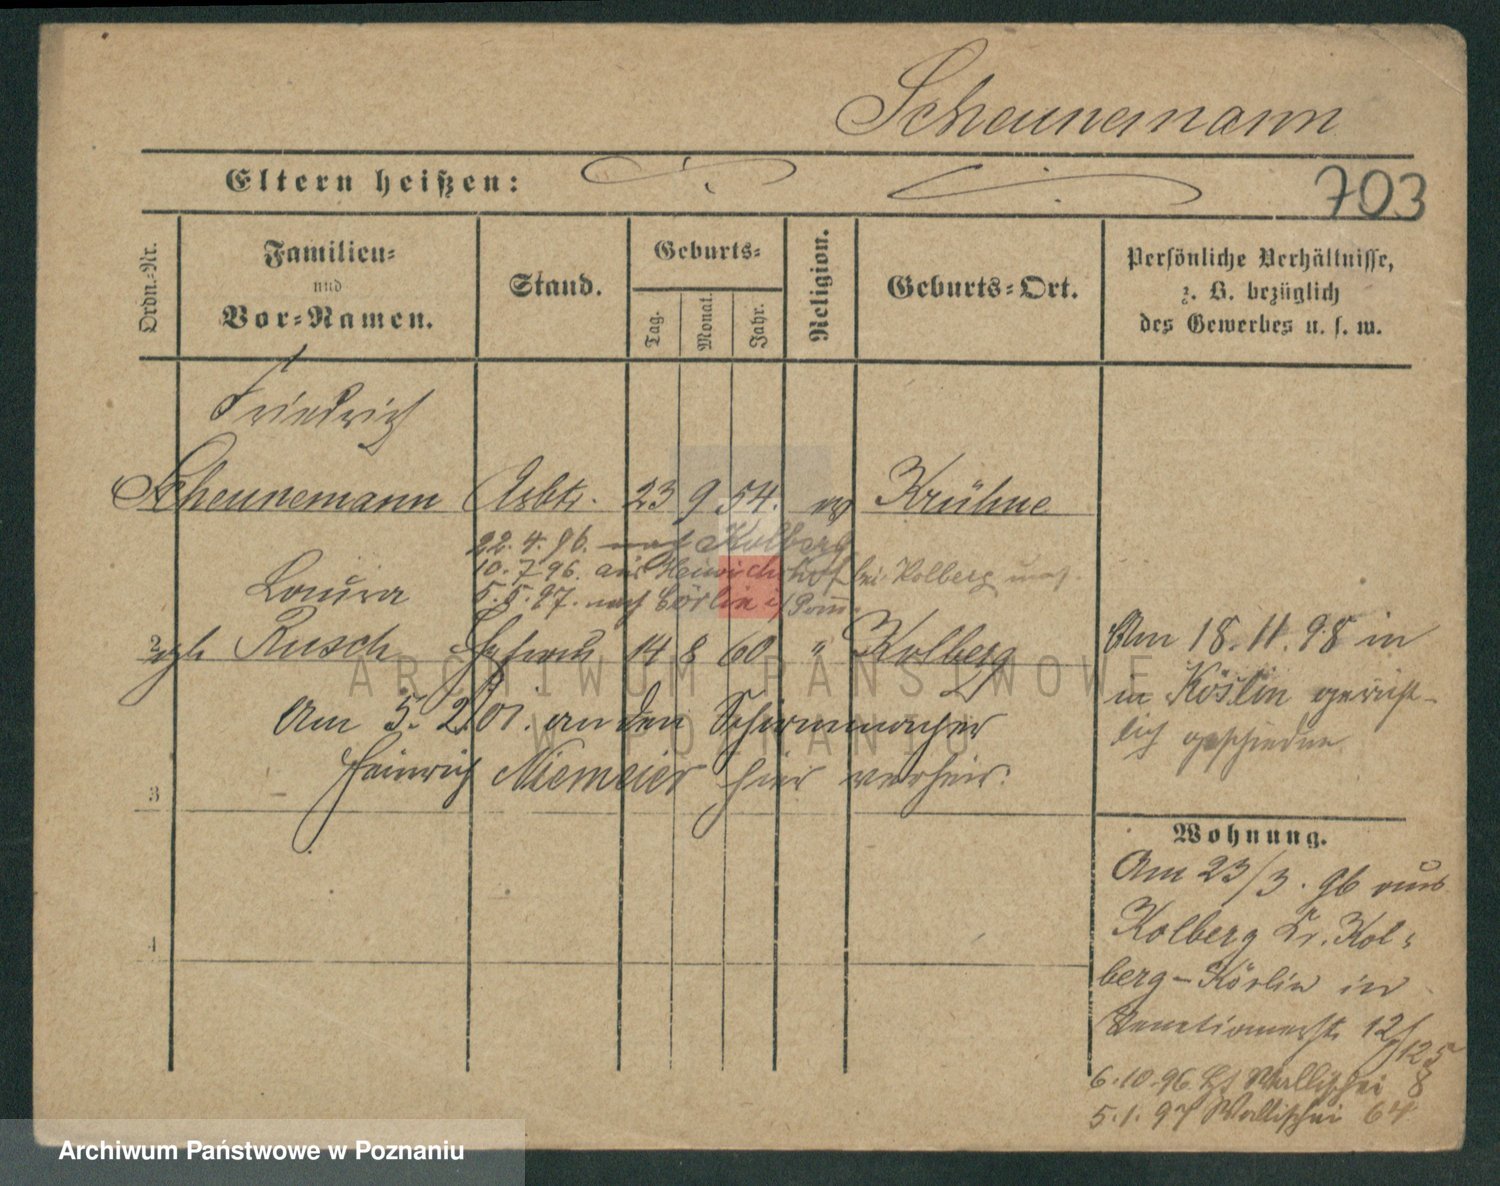 Scheunemann
Eltern heißen:
703
Ordn.-Nr.
Familien- und Vor-Namen.
Stand.
Geburts-
Tag.
Monat.
Jahr.
Religion.
Geburts-Ort.
Persönliche Verhältnisse,
z. B. bezüglich
des Gewerbes u. s. w.
Friedrich
Scheunemann Arbtr. 23 9 54. ev Krühne
22. 4. 96. nach Kolberg
10. 7 96. aus Heinrichshof bei Kolberg
5. 5. 97. nach Cörlin i/Pom.
Louisa
2 Rusch Ehefrau 14 8 60 " Kolberg
Am 18. 11. 98 in
in Köslin gericht-
lich geschieden
Am 5. 2. 01. an den Schirmmacher
Heinrich Niemeier hier verheir.
3
4
Wohnung.
Am 23/3. 96 aus
Kolberg Kr. Kol-
berg-Körlin in
Venetianerstr. 12/
125
6. 10. 96 Wallischei 8
5. 1. 97 Wallischei 64
ARCHIWUM PAŃSTWOWE
W POZNANIU
Archiwum Państwowe w Poznaniu